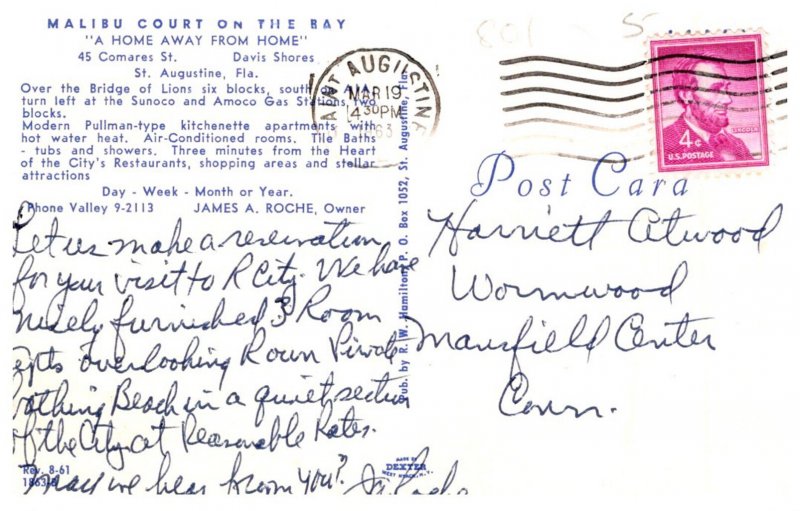 MALIBU COURT ON THE BAY
"A HOME AWAY FROM HOME"
45 Comares St. Davis Shores
St. Augustine, Fla.
Over the Bridge of Lions six blocks, south on A1A,
turn left at the Sunoco and Amoco Gas Stations, two
blocks.
Modern Pullman-type kitchenette apartments with
hot water heat. Air-Conditioned rooms. Tile Baths
- tubs and showers. Three minutes from the Heart
of the City's Restaurants, shopping areas and stellar
attractions
Day - Week - Month or Year.
Phone Valley 9-2113 JAMES A. ROCHE, Owner
Let us make a reservation
for your visit to R City. We have
nicely furnished 3 Room
apts overlooking Private
Bathing Beach in a quiet section
of the City at Reasonable Rates.
May we hear from you?
Rev. 8-61
1863-B
MADE BY
DEXTER
Pub. by R. W. Hamilton, P. O. Box 1052, St. Augustine, Fla.
SAINT AUGUSTINE
MAR 19
4 30 PM
1963
801 - 5
4¢
LINCOLN
U.S. POSTAGE
Post Card
Harriett Atwood
Wormwood
Mansfield Center
Conn.